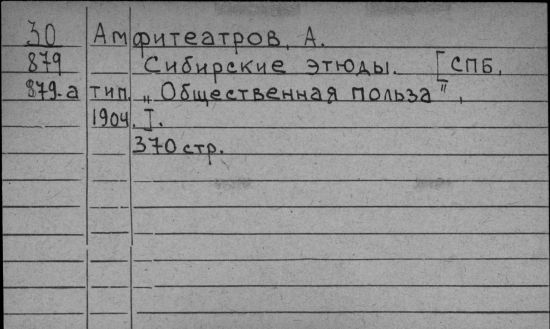 30 Амфитеатров, А.
879 Сибирские этюды. [СПБ,
879-а тип. „Общественная польза",
1904. I.
370 стр.